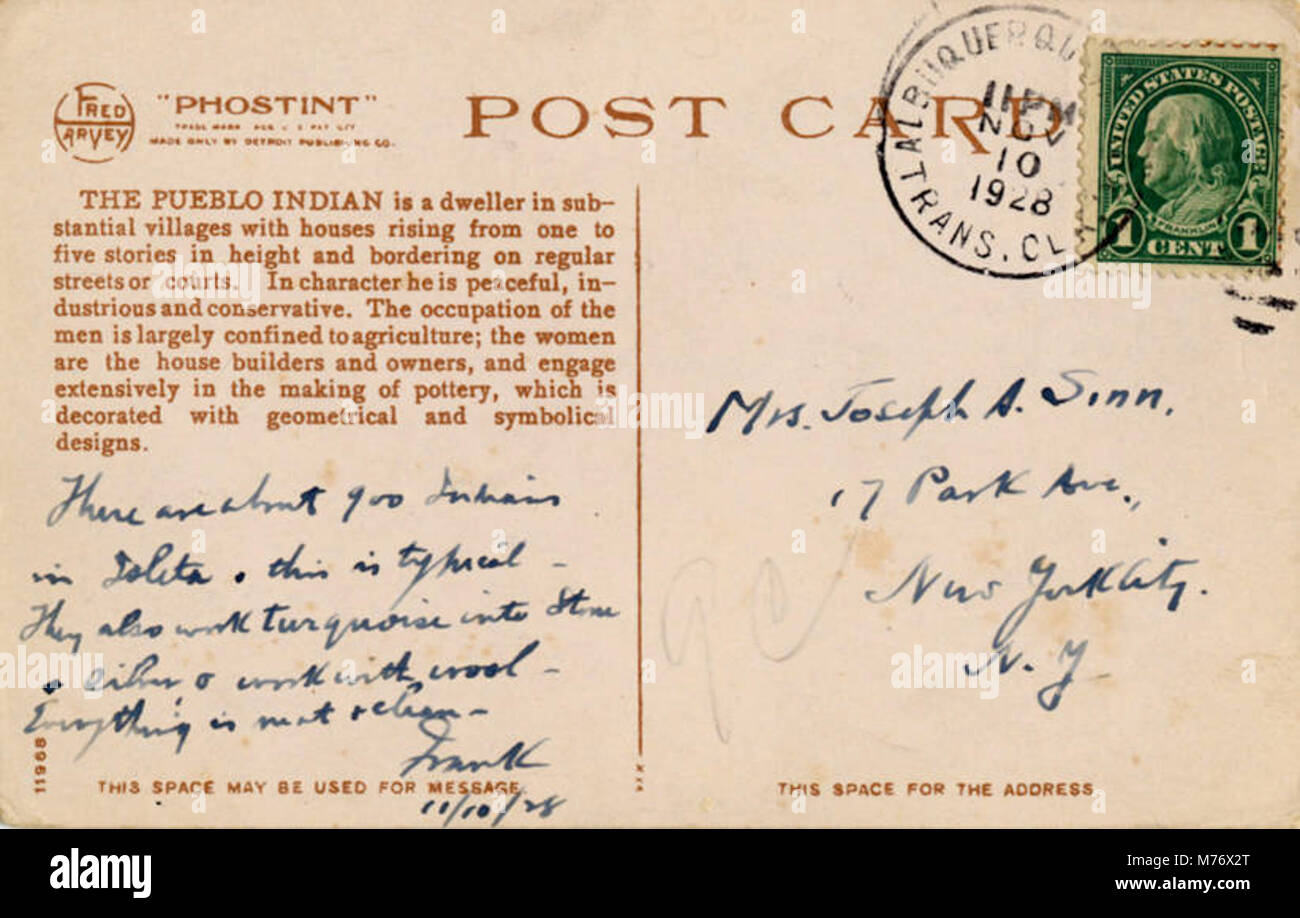 FRED HARVEY
"PHOSTINT"
TRADE MARK REG. U.S. PAT. OFF.
MADE ONLY BY DETROIT PUBLISHING CO.
POST CARD
ALBUQUERQUE
11 PM
NOV
10
1928
TRANS. CL
UNITED STATES POSTAGE
FRANKLIN
1 CENT 1
THE PUEBLO INDIAN is a dweller in sub-
stantial villages with houses rising from one to
five stories in height and bordering on regular
streets or courts. In character he is peaceful, in-
dustrious and conservative. The occupation of the
men is largely confined to agriculture; the women
are the house builders and owners, and engage
extensively in the making of pottery, which is
decorated with geometrical and symbolical
designs.
There are about 900 Indians
in Isleta . this is typical -
They also work turquoise into stone
& silver, & work with wool -
Everything is neat & clean -
Frank
11/10/28
Mrs. Joseph A. Sinn,
17 Park Ave.,
New York City.
N. Y.
11968
THIS SPACE MAY BE USED FOR MESSAGE
THIS SPACE FOR THE ADDRESS
alamy
Image ID: M76X2T
www.alamy.com